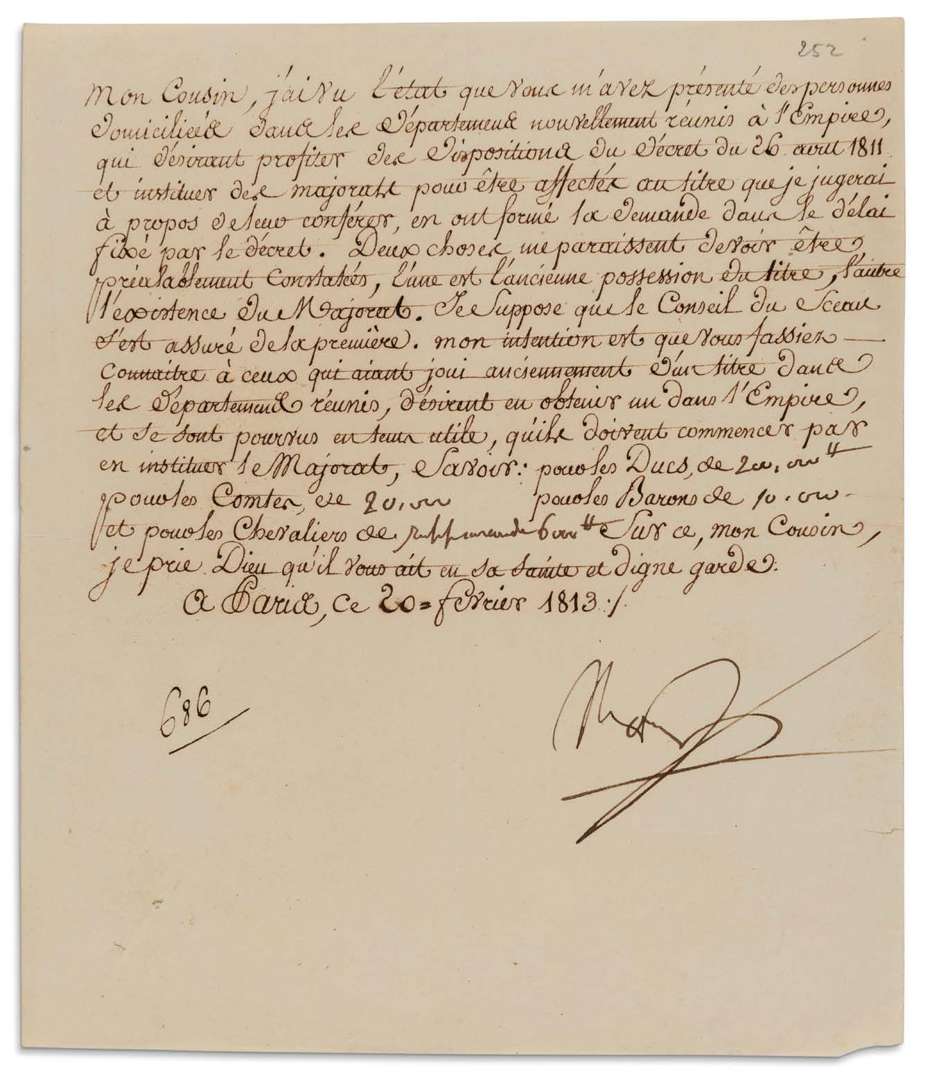 252
Mon Cousin, j'ai vu l'état que vous m'avez présenté des personnes
domiciliées dans les Départemens nouvellement réunis à l'Empire,
qui désirant profiter des dispositions du décret du 26 avril 1811
et instituer des majorats pour être affectés au titre que je jugerai
à propos de leur conférer, en ont formé la demande dans le délai
fixé par le décret. Deux choses me paraissent devoir être
préalablement constatés, l'une est l'ancienne possession du titre, l'autre
l'existence du Majorat. Je suppose que le Conseil du Sceau
s'est assuré de la première. mon intention est que vous fassiez
connaitre à ceux qui aiant joui anciennement d'un titre dans
les Départemens réunis, désirent en obtenir un dans l'Empire,
et se sont pourvus en tems utile, qu'ils doivent commencer par
en instituer le Majorat, Savoir: pour les Ducs, de
pour les Comtes, de 20,000 pour les Barons de 10.000
et pour les Chevaliers de Sur ce, mon Cousin,
je prie Dieu qu'il vous ait en sa sainte et digne garde.
A Paris, ce 20 = février 1813 ./.
686